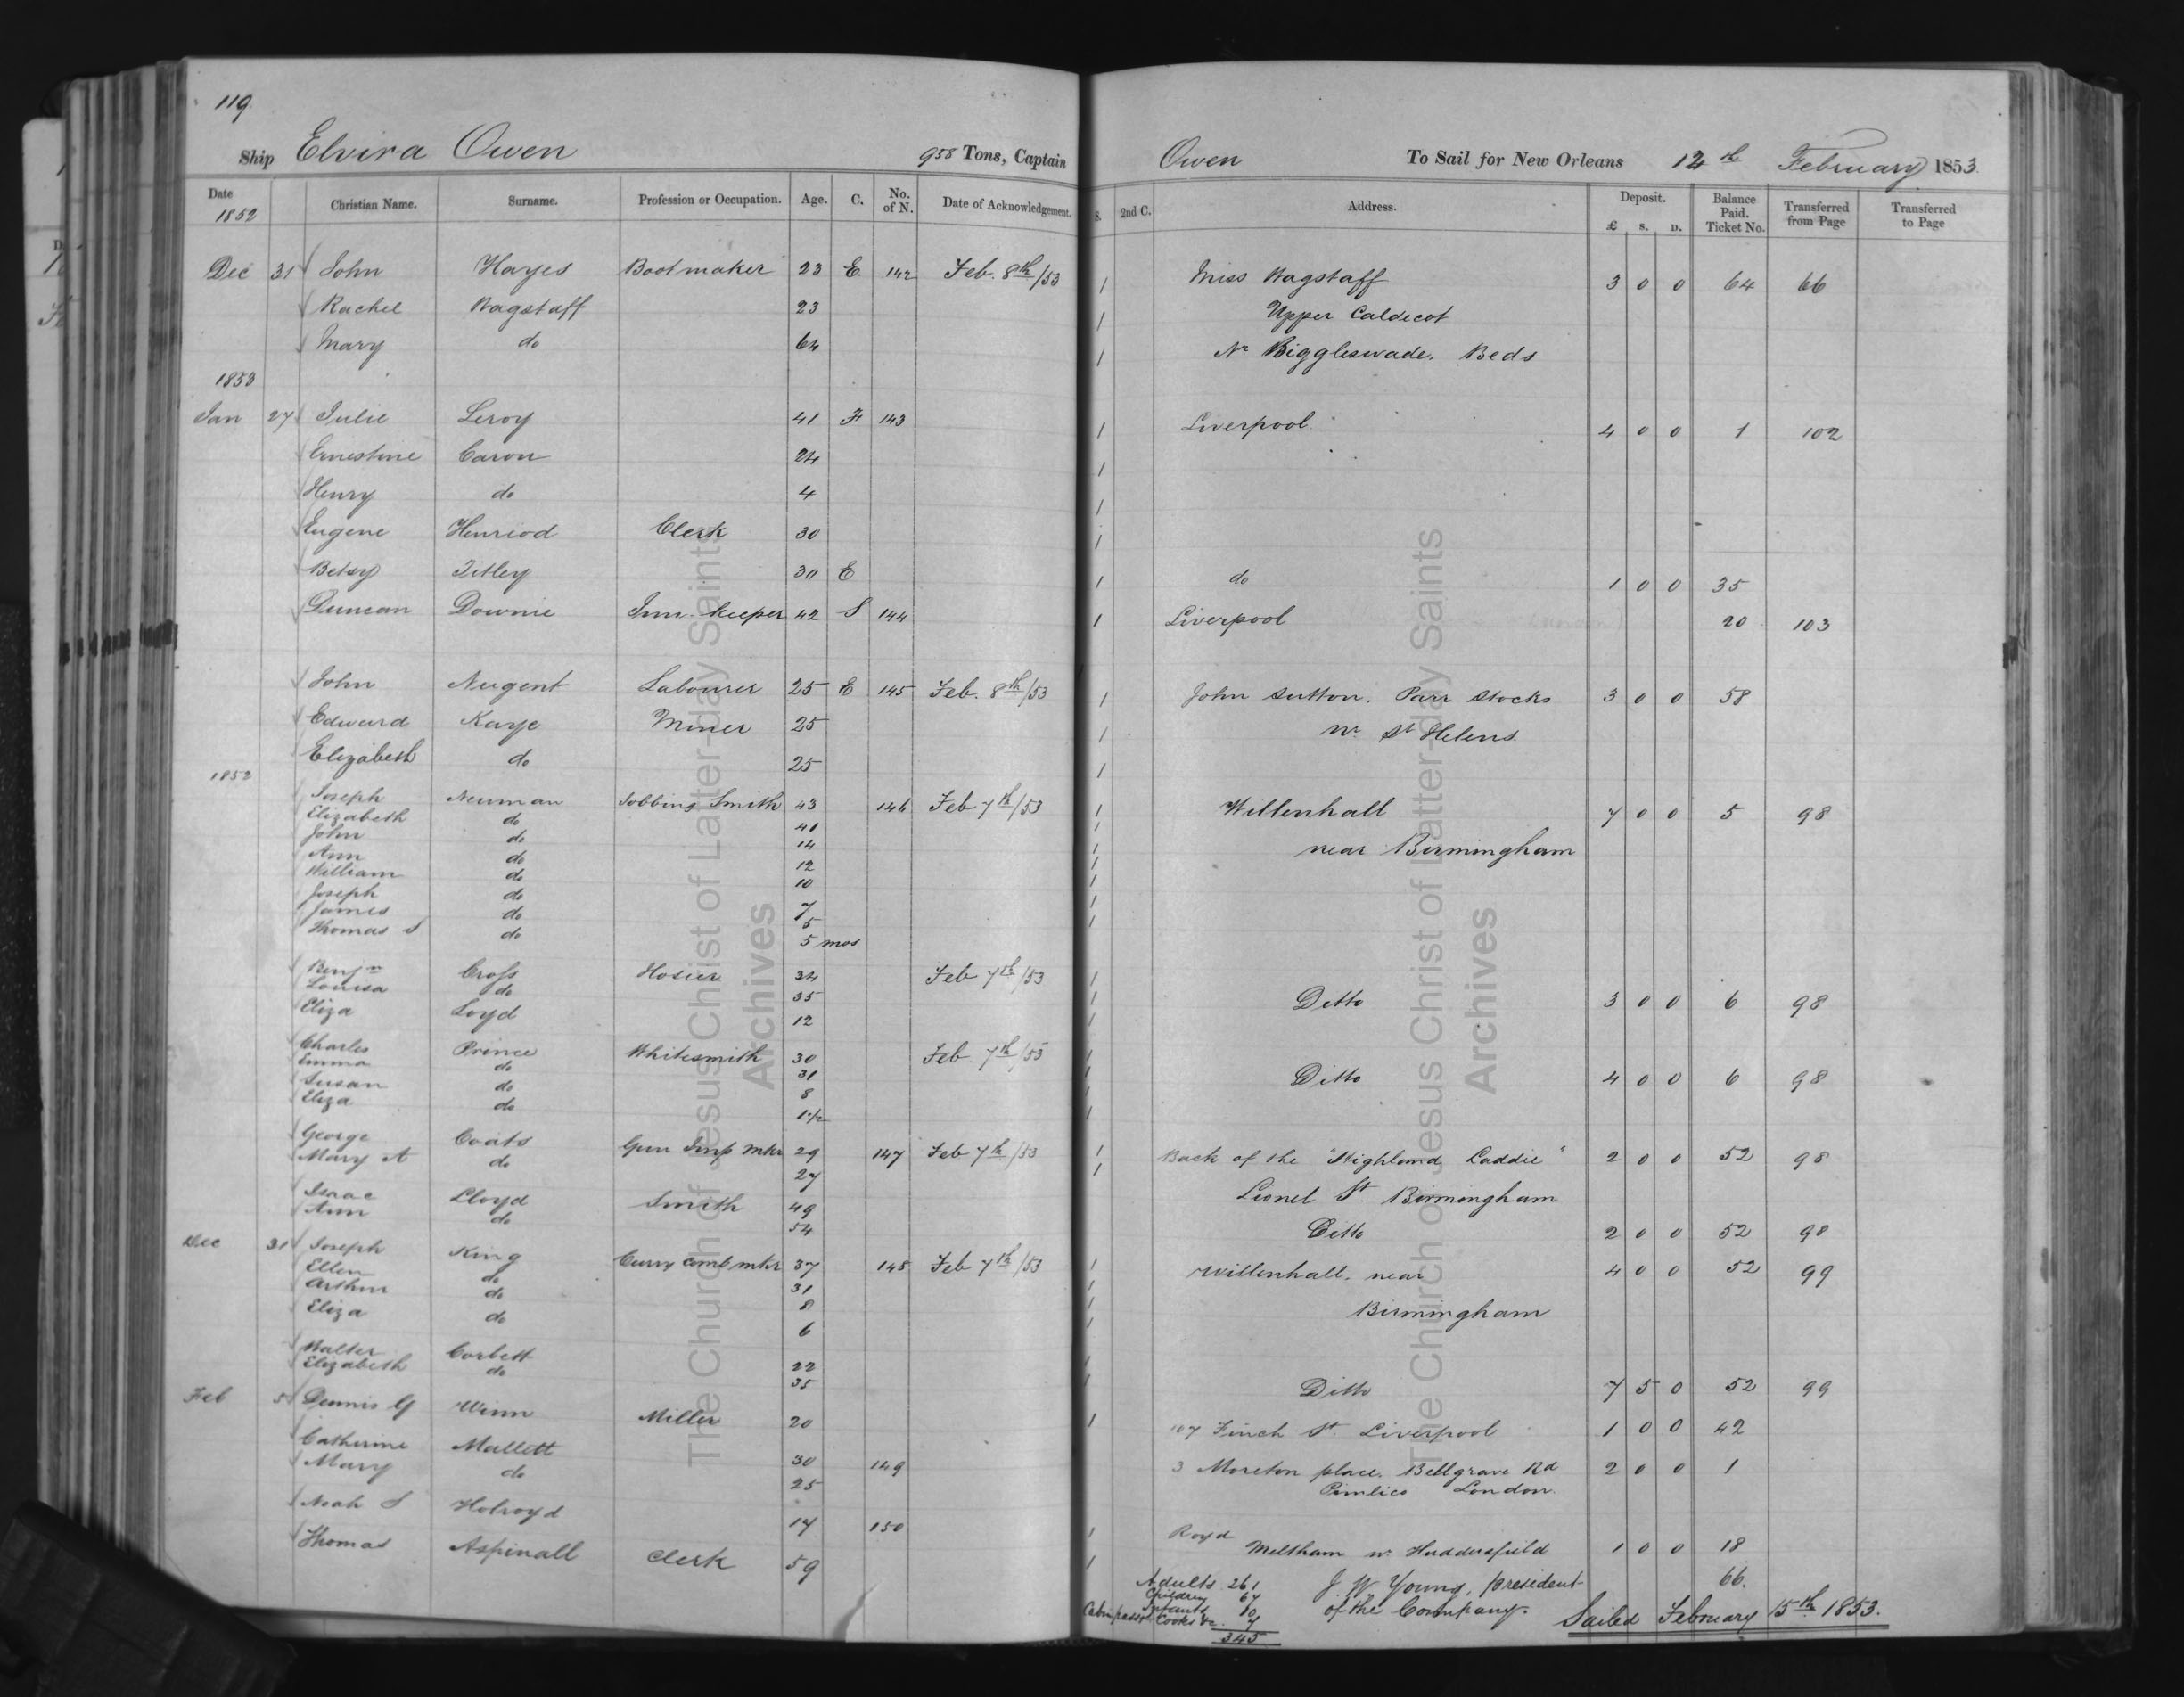 119
Ship Elvira Owen 958 Tons, Captain Owen To Sail for New Orleans 12th February 1853
Date Christian Name. Surname. Profession or Occupation. Age. C. No. of N. Date of Acknowledgement. S. 2nd C. Address. Deposit. £ S. D. Balance Paid. Ticket No. Transferred from Page Transferred to Page
1852
Dec 31 John Hayes Bootmaker 23 E. 142 Feb. 8th/53 1 Miss Wagstaff 3 0 0 64 66
Rachel Wagstaff 23 1 Upper Caldecot
Mary do 64 1 Nr Biggleswade. Beds
1853
Jan 27 Julie Leroy 41 F 143 1 Liverpool 4 0 0 1 102
Ernestine Caron 24 1
Henry do 4 1
Eugene Henriod Clerk 30 1
Betsy Titley 30 E 1 do 1 0 0 35
Duncan Downie Inn-keeper 42 S 144 1 Liverpool 20 103
John Nugent Labourer 25 E 145 Feb. 8th/53 1 John Sutton. Parr Stocks 3 0 0 58
Edward Kaye Miner 25 1 nr St Helens
Elizabeth do 25 1
1852
Joseph Newman Jobbing Smith 43 146 Feb 7th/53 1 Willenhall 7 0 0 5 98
Elizabeth do 41 1
John do 14 1 near Birmingham
Ann do 12 1
William do 10 1
Joseph do 7 1
James do 5 1
Thomas S do 5 mos
Benjn Cross Hosier 34 Feb 7th/53 1
Louisa do 35 1 Ditto 3 0 0 6 98
Eliza Loyd 12 1
Charles Prince Whitesmith 30 Feb 7th/53 1
Emma do 31 1 Ditto 4 0 0 6 98
Susan do 8 1
Eliza do 1 1/2 1
George Coats Gun Imp mkr 29 147 Feb 7th/53 1 Back of the "Highland Laddie" 2 0 0 52 98
Mary A do 27 1
Isaac Lloyd Smith 49 Lionel St Birmingham
Ann do 54 Ditto 2 0 0 52 98
Dec 31 Joseph King Curry comb mkr 37 148 Feb 7th/53 1 Willenhall. near 4 0 0 52 99
Ellen do 31 1
Arthur do 8 1 Birmingham
Eliza do 6 1
Walter Corbett 22 1
Elizabeth do 35 1 Ditto 7 5 0 52 99
Feb 5 Dennis G Winn Miller 20 1 107 Finch St. Liverpool 1 0 0 42
Catherine Mallett 30 149 3 Moreton place. Bellgrave Rd 2 0 0 1
Mary do 25 Pimlico London
Noah S Holroyd 17 150 1 Royd
Meltham nr Huddersfield 1 0 0 18
Thomas Aspinall Clerk 59 1 66.
Adults 261 J. W. Young, president
Children 67 of the Company.
Infants 10
Cabin passr Cooks &c. 7 Sailed February 15th 1853.
345
The Church of Jesus Christ of Latter-day Saints
Archives
The Church of Jesus Christ of Latter-day Saints
Archives